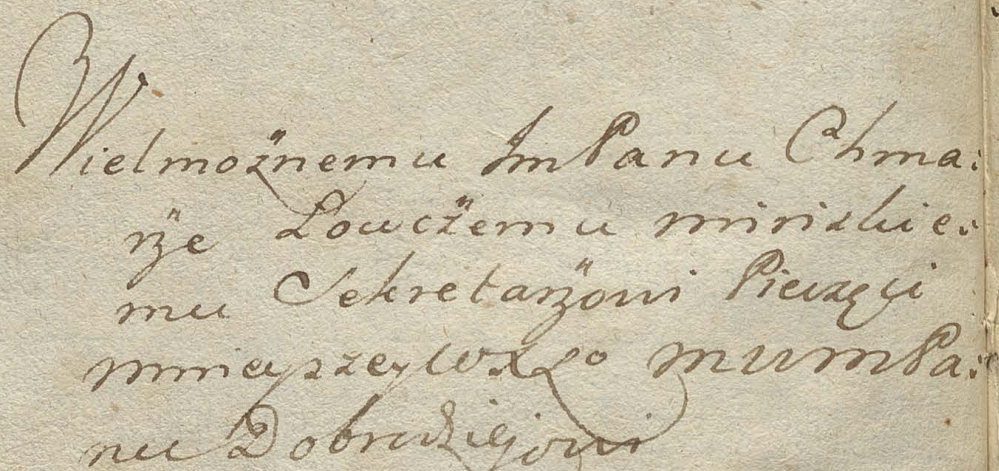 Wielmożnemu Jm Panu Chma:
rże Łowcżemu minskie:
mu Sekretarżowi Pieczęci
mnieyszey WXLo mumPa:
nu Dobrodziejowi